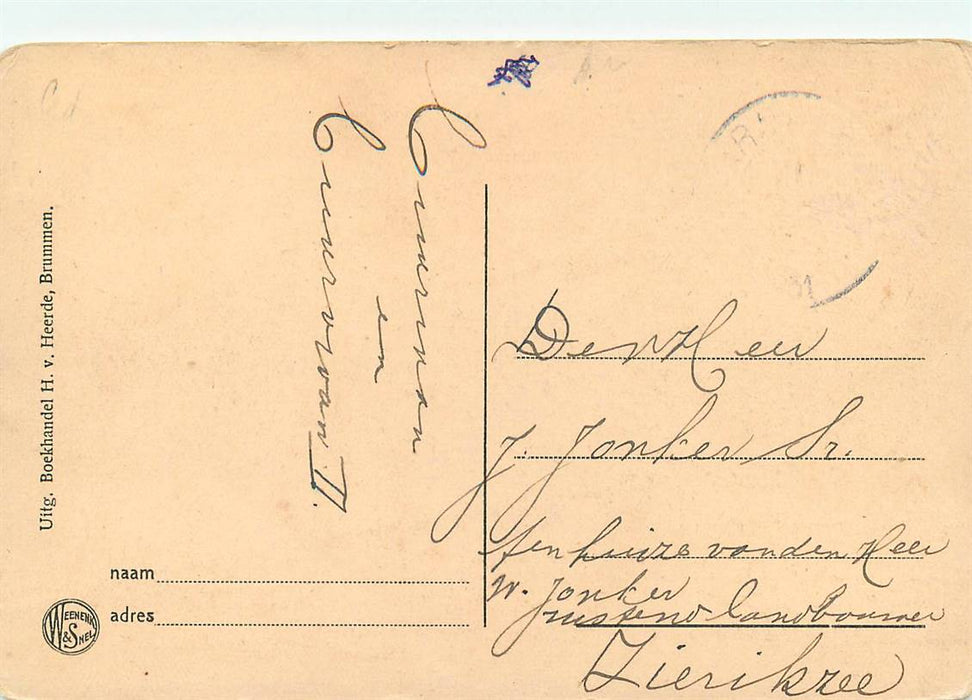 Uitg. Boekhandel H. v. Heerde, Brummen.
en
II.
Den Heer
J. Jonker Sr.
ten huize van den Heer
W. Jonker
rustend landbouwer
Zierikzee
naam
adres
WEENENK & SNEL